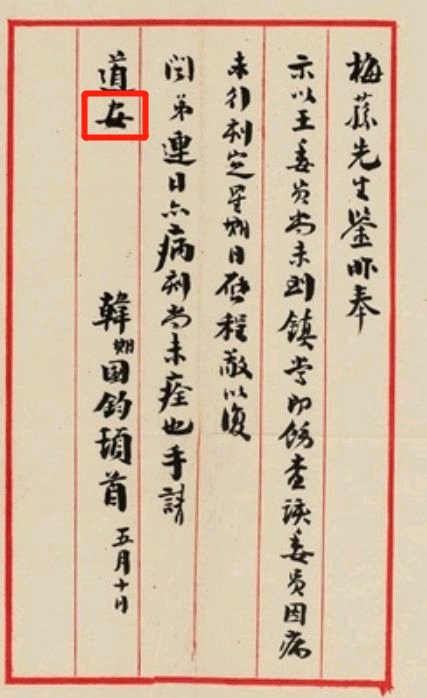 梅蓀先生鉴昨奉
示以王委员尚未到鎮当即饬查该委员因病
未行刻定星期日啟程敬以復
闻弟連日亦病刻尚未痊也手請
道安
韓期国鈞頓首 五月十日